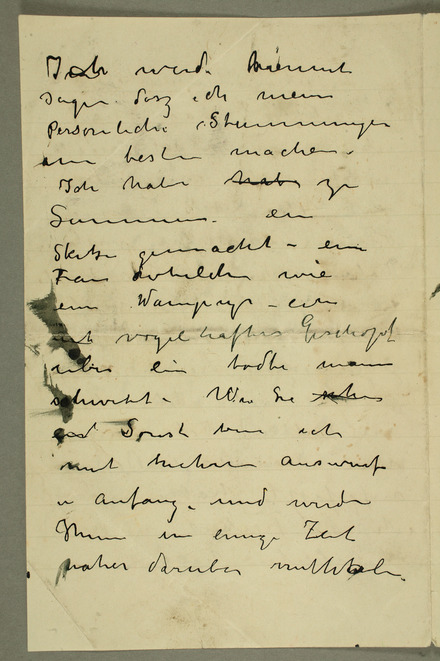 Ich werde hiermit
sagen dasz ich meine
Persönliche Stimmungen
am besten machen.
Ich habe habe zu
Summen. ein
Skitze gemacht – ein
Frau welche wie
ein Wampyr – ein
mit vogel haftes Geschöpf
über ein todte mann
schwebt – Wie Sie sehe
sonst bin ich
mit
u anfang. und werde
Ihnen in einige Zeit
näher darüber mittheilen.